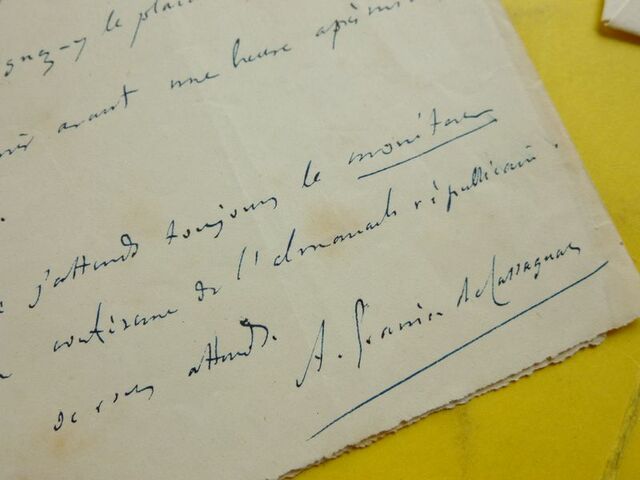 y le
avant une heure après
j'attends toujours le moniteur
de l'almanach républicain.
attends.
A. Granier de Cassagnac